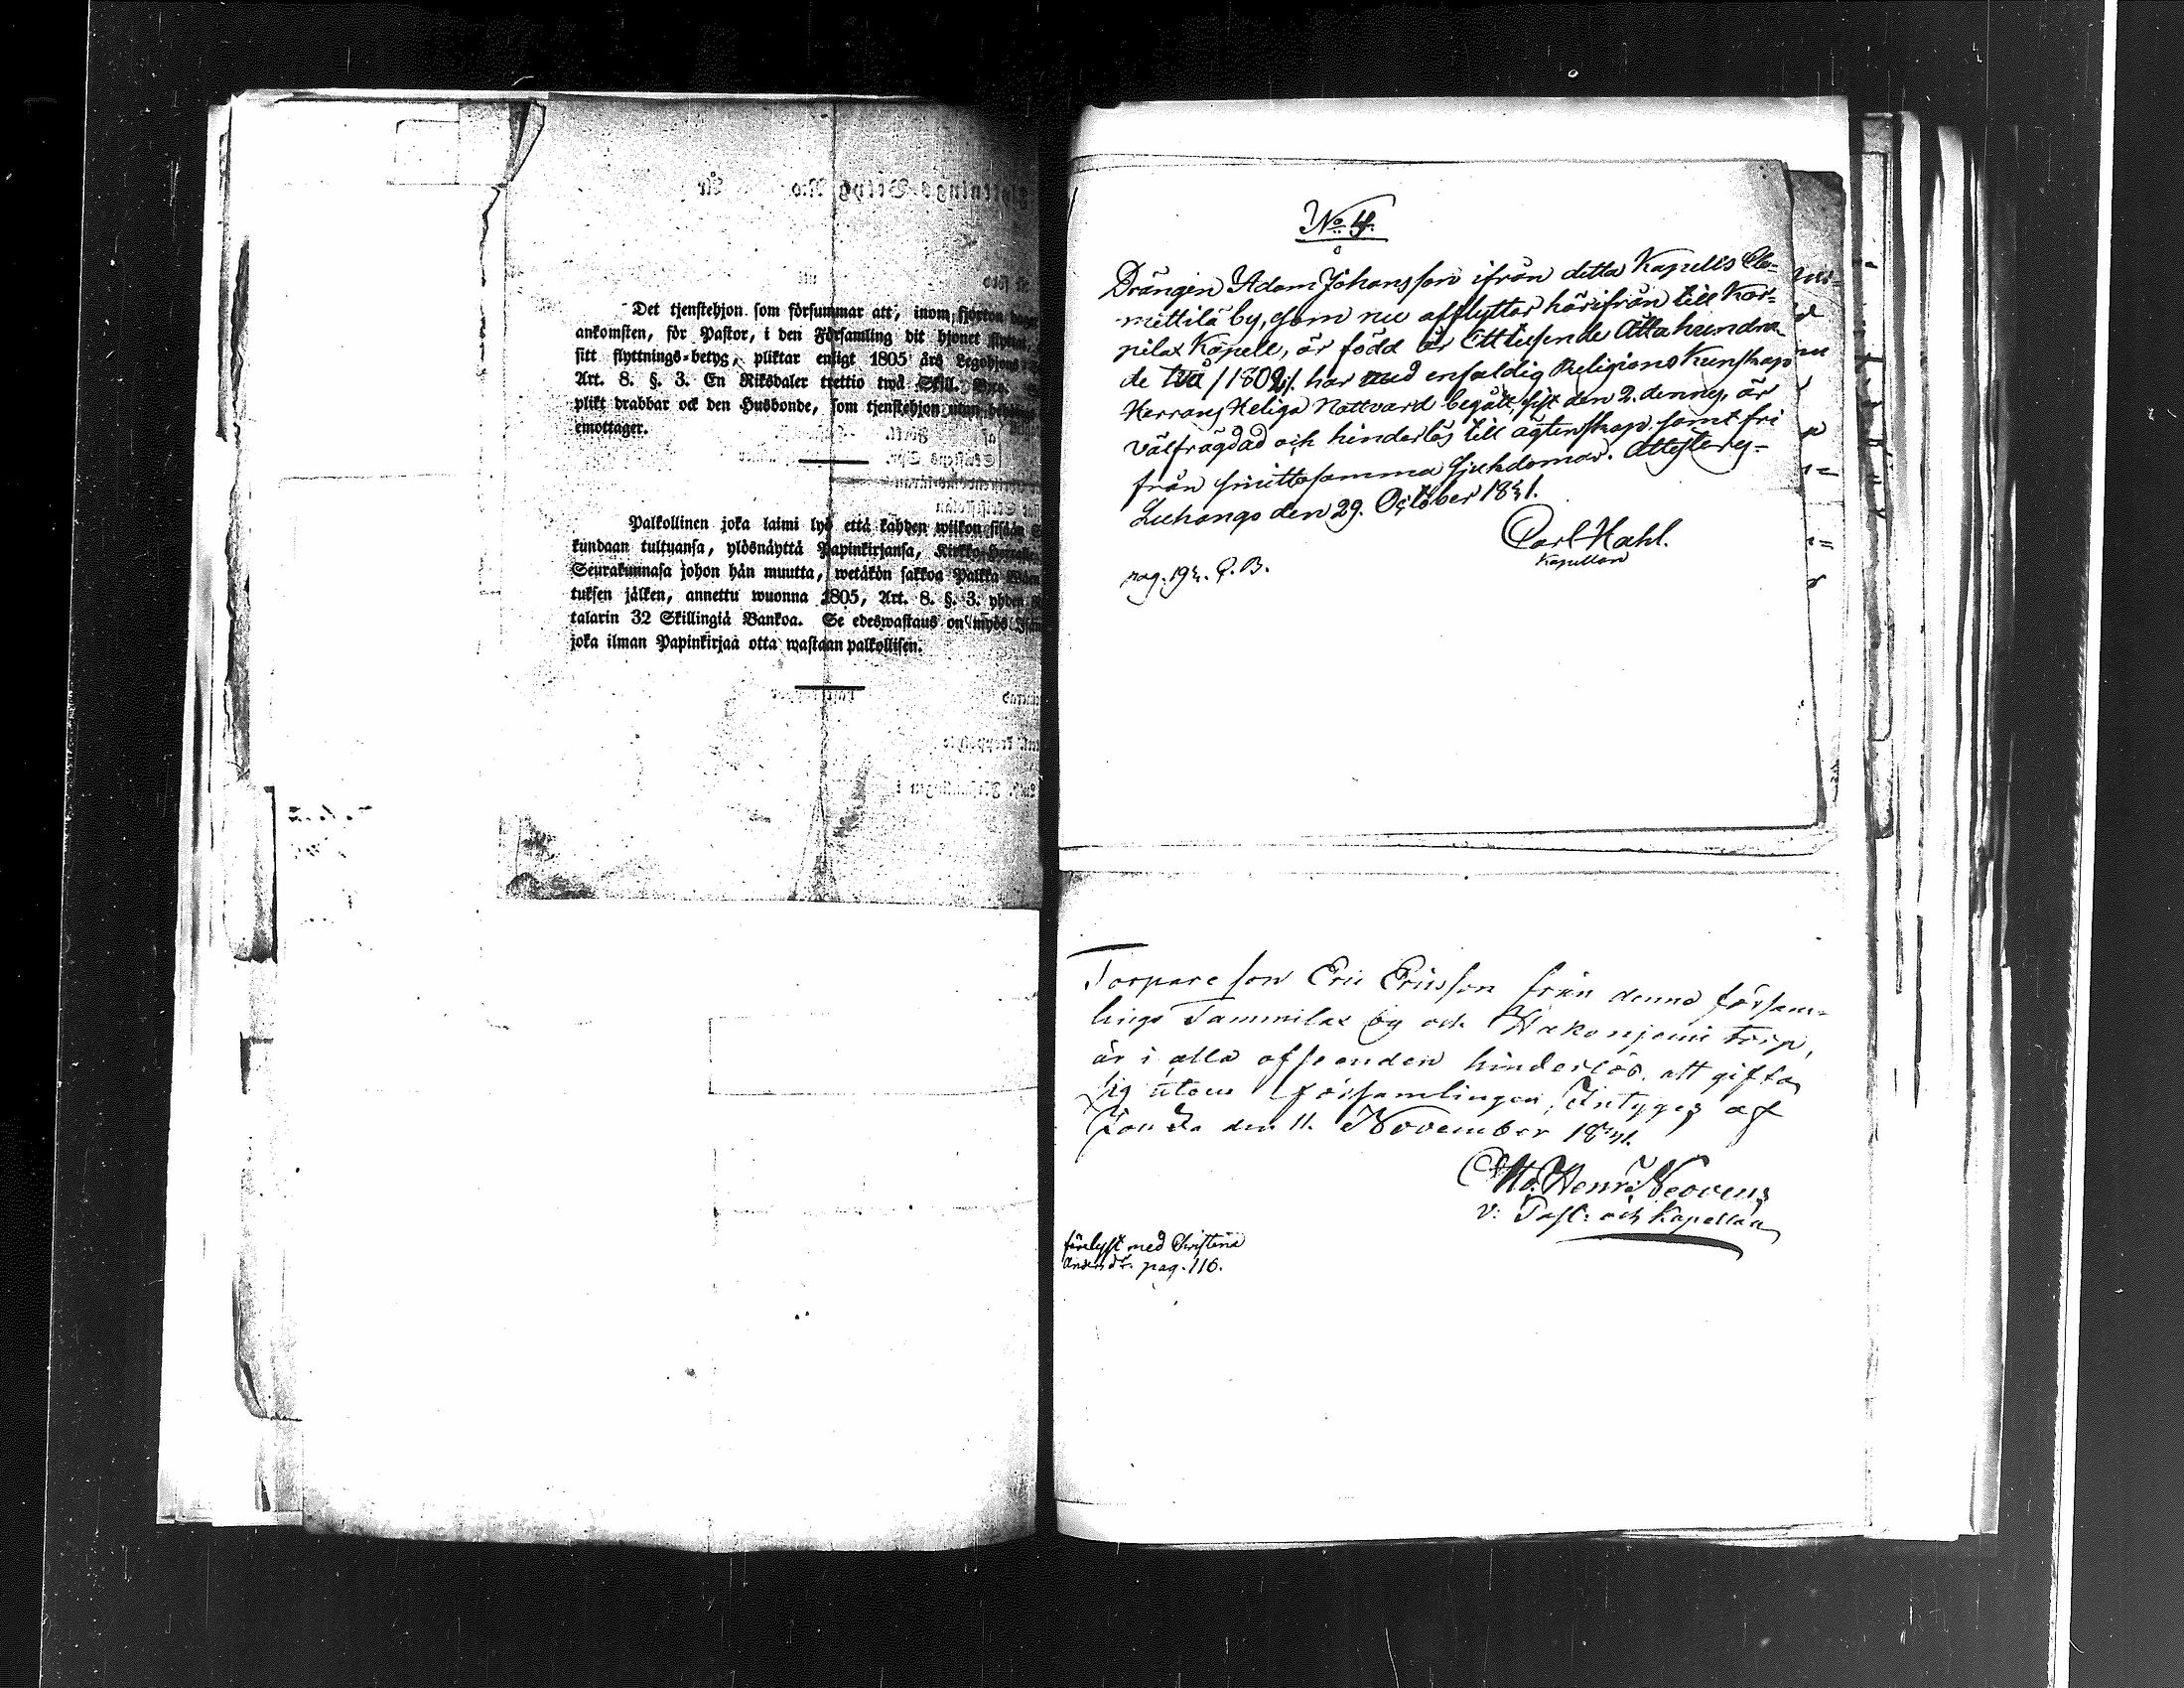 Det tjenstehjon som försummar att, inom fjorton dagar
ankomsten, för Pastor, i den Församling dit hjonet flyttat,
sitt flyttnings-betyg, pliktar enligt 1805 års Legohjons
Art. 8. §. 3. En Riksdaler trettio twå Skill. Bco.
plikt drabbar ock den Husbonde, som tjenstehjon utan
emottager.
Palkollinen joka laimi lyö että kahden wiikon sisään
kundaan tultuansa, ylösnäyttä Papinkirjansa, Kirkko
Seurakunnasa johon hän muutta, wetäkön sakkoa Palkka
tuksen jälken, annettu wuonna 1805, Art. 8. §. 3. yhden
talarin 32 Skillingiä Bankoa. Se edeswastaus on myös
joka ilman Papinkirjaa otta wastaan palkollisen.
No 4.
Drängen Adam Johansson ifrån detta Kapells
mettilä by, som nu afflyttar härifrån till Kor-
pilax Kapell, är född år Ett tusende Åtta hundra
de två /1802/. har med enfaldig Religions Kunskap
Herrans Heliga Nattvard begått sist den 2. dennes, är
välfrägdad och hinderlös till ägtenskap samt fri
från smittosamma sjukdomar. Attesteras
Luhango den 29. October 1831.
Carl Hahl.
Kapellan
pag. 193. C. B.
Torpare son Eric Ericsson från denna försam-
lings Tammilax by och Hakoniemi torp,
är i alla afseenden hinderlös att gifta
sig utom församlingen, Intygas af
den 11. November 1831.
v: Past: och Kapellan
förelyst med Christina
Andersdr. pag. 116.